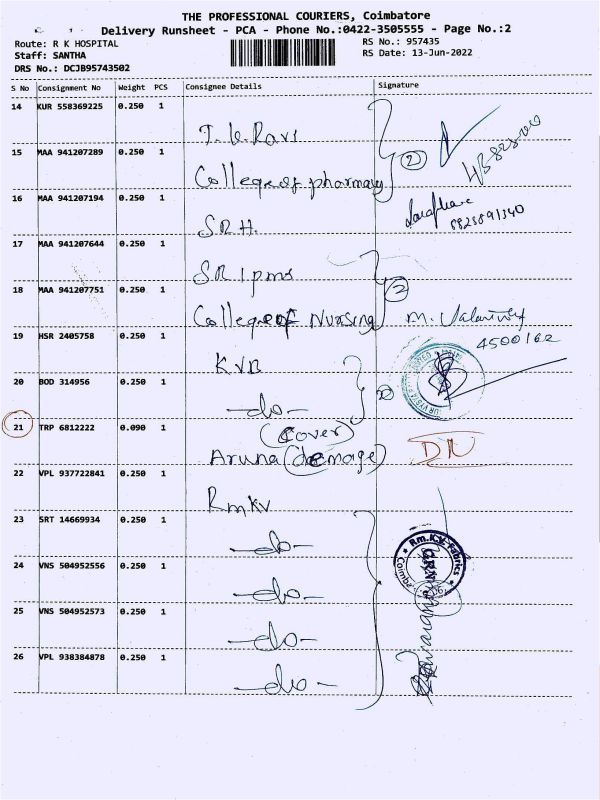 THE PROFESSIONAL COURIERS, Coimbatore
Delivery Runsheet - PCA - Phone No.:0422-3505555 - Page No.:2
Route: R K HOSPITAL
RS No.: 957435
Staff: SANTHA
RS Date: 13-Jun-2022
DRS No.: DCJB95743502
S No Consignment No Weight PCS Consignee Details Signature
14 KUR 558369225 0.250 1
T.K.Ravi
15 MAA 941207289 0.250 1
2
College of pharmacy
16 MAA 941207194 0.250 1
S.R.H.
17 MAA 941207644 0.250 1
SRIpms
18 MAA 941207751 0.250 1
College of Nursing
19 HSR 2405758 0.250 1
4500162
KVB
20 BOD 314956 0.250 1
-do-
(cover)
21 TRP 6812222 0.090 1
Aruna (demage)
DN
22 VPL 937722841 0.250 1
RmKV
23 SRT 14669934 0.250 1
-do-
Rm.K.V. Fabrics
24 VNS 504952556 0.250 1
-do-
25 VNS 504952573 0.250 1
-do-
26 VPL 938384878 0.250 1
-do-